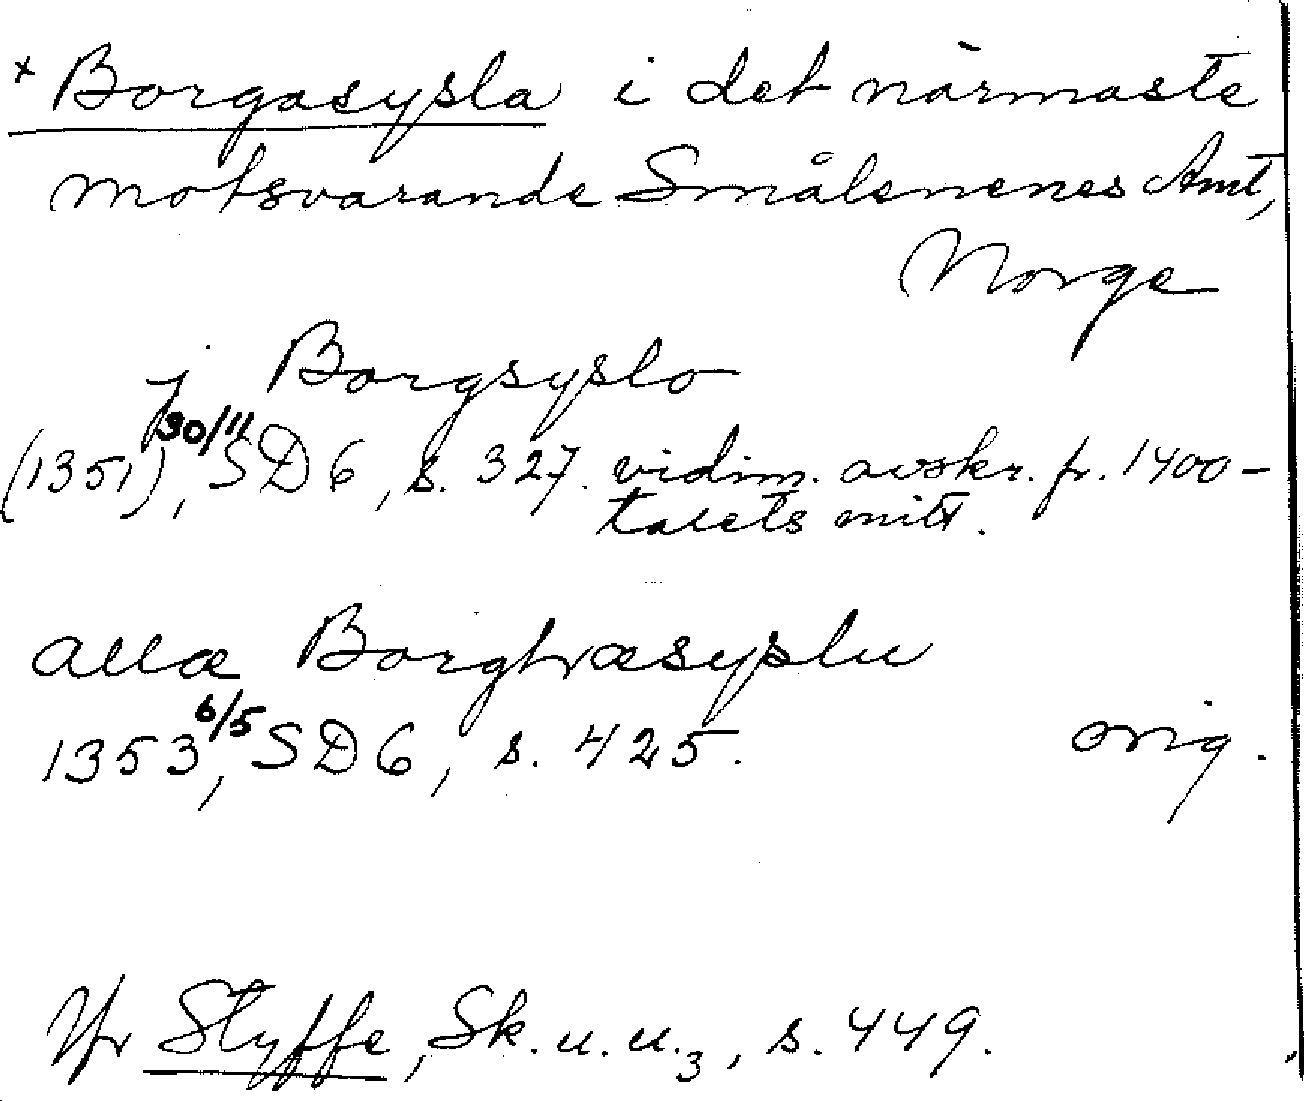 × Borgasysla i det närmaste
motsvarande Smålenenes Amt,
Norge
j Borgsyslo
(1351) 30/11, SD 6, s. 327. vidim. avskr. fr. 1400-
talets mitt.
allæ Borghæsyslu
1353 6/5, SD 6, s. 425. orig.
Jfr Styffe, Sk. u. u.3, s. 449.